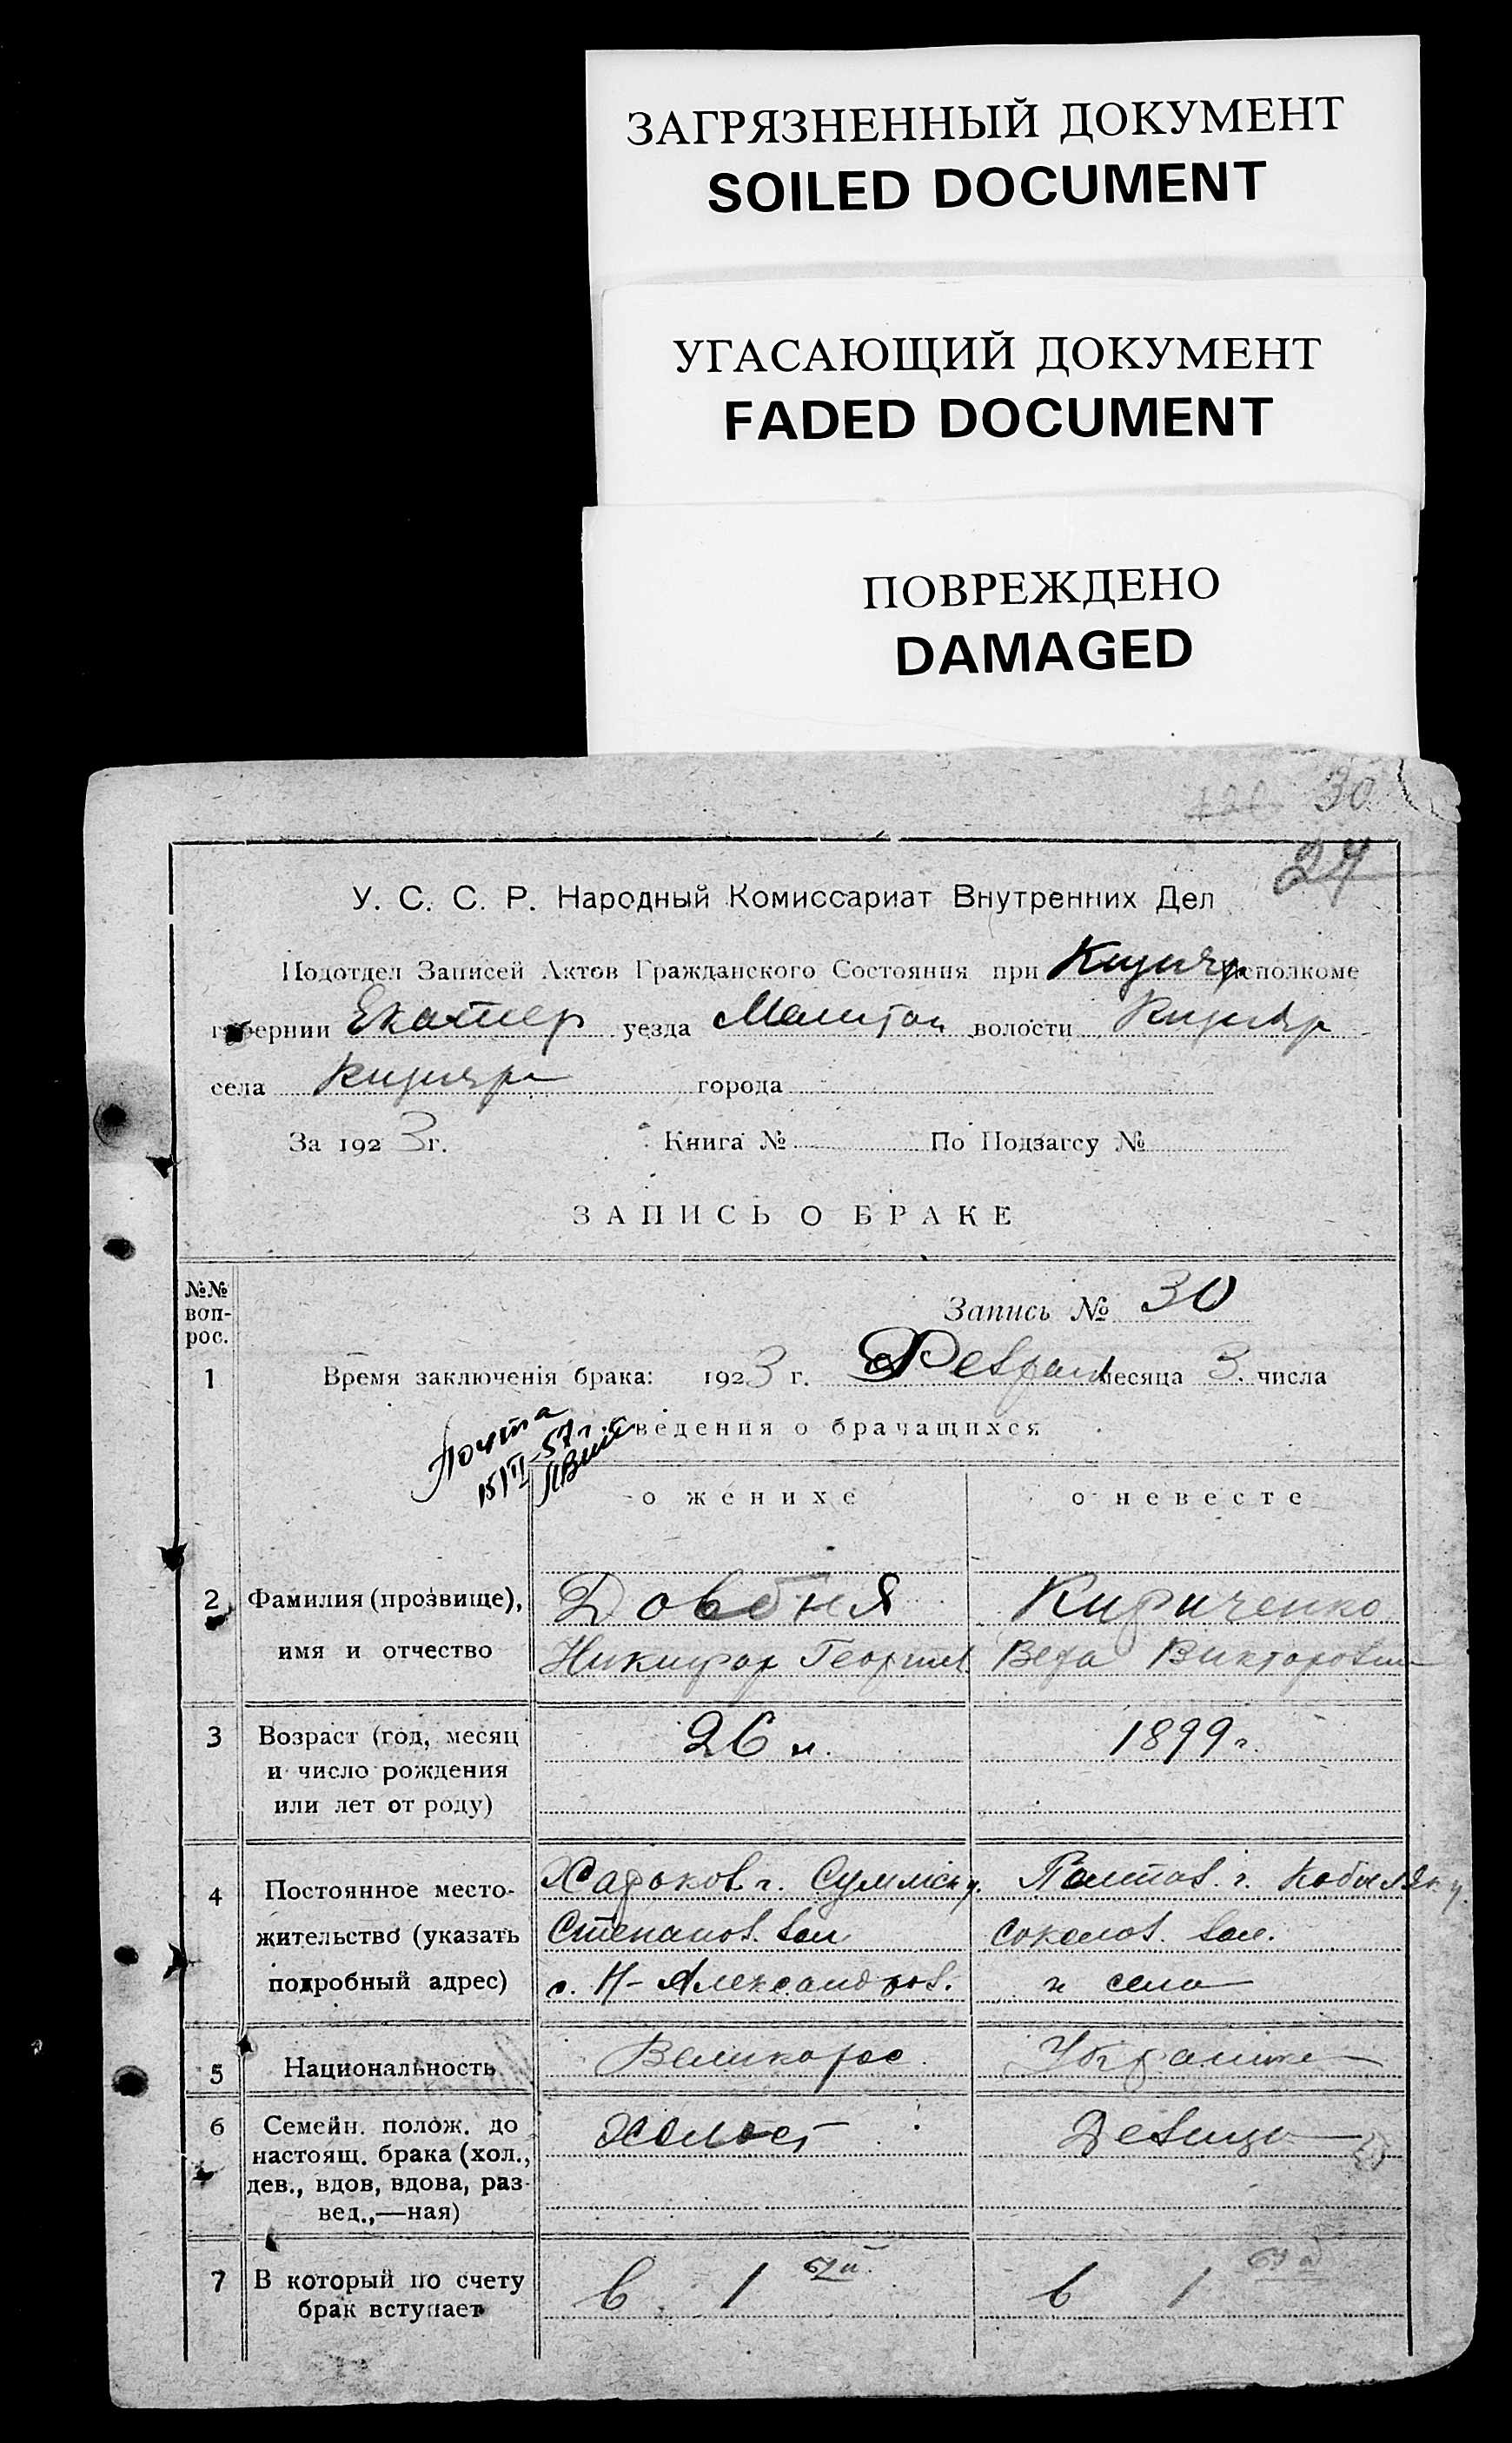 ЗАГРЯЗНЕННЫЙ ДОКУМЕНТ
SOILED DOCUMENT
УГАСАЮЩИЙ ДОКУМЕНТ
FADED DOCUMENT
ПОВРЕЖДЕНО
DAMAGED
30
27
У. С. С. Р. Народный Комиссариат Внутренних Дел
Подотдел Записей Актов Гражданского Состояния при Кизияр исполкоме
губернии Екатер уезда Мелитоп волости Кизияр
села Кизияр города
За 1923 г. Книга № По Подзагсу №
ЗАПИСЬ О БРАКЕ
№№ воп-
рос.
Запись № 30
1 Время заключенія брака: 1923 г. Февраля месяца 3 числа
Сведения о брачащихся
Почта
15/II-57г.
о женихе о невесте
2 Фамилия (прозвище), Довбня Кириченко
имя и отчество Никифор Георгиев Вера Викторовна
3 Возраст (год, месяц 26 л. 1899 г.
и число рождения
или лет от роду)
4 Постоянное место- Харьков. г. Суммск у. Полтав. г. Кобыляк у.
жительство (указать Степанов. вол. Соколов. вол.
подробный адрес) с. Н-Александров. и село
5 Национальность Великорос Украинке
6 Семейн. полож. до Холост Девица
настоящ. брака (хол.,
дев., вдов, вдова, раз-
вед.,—ная)
7 В который по счету в 1 ый в 1 ый
брак вступает